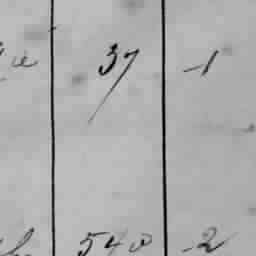 37 -1
540 -2